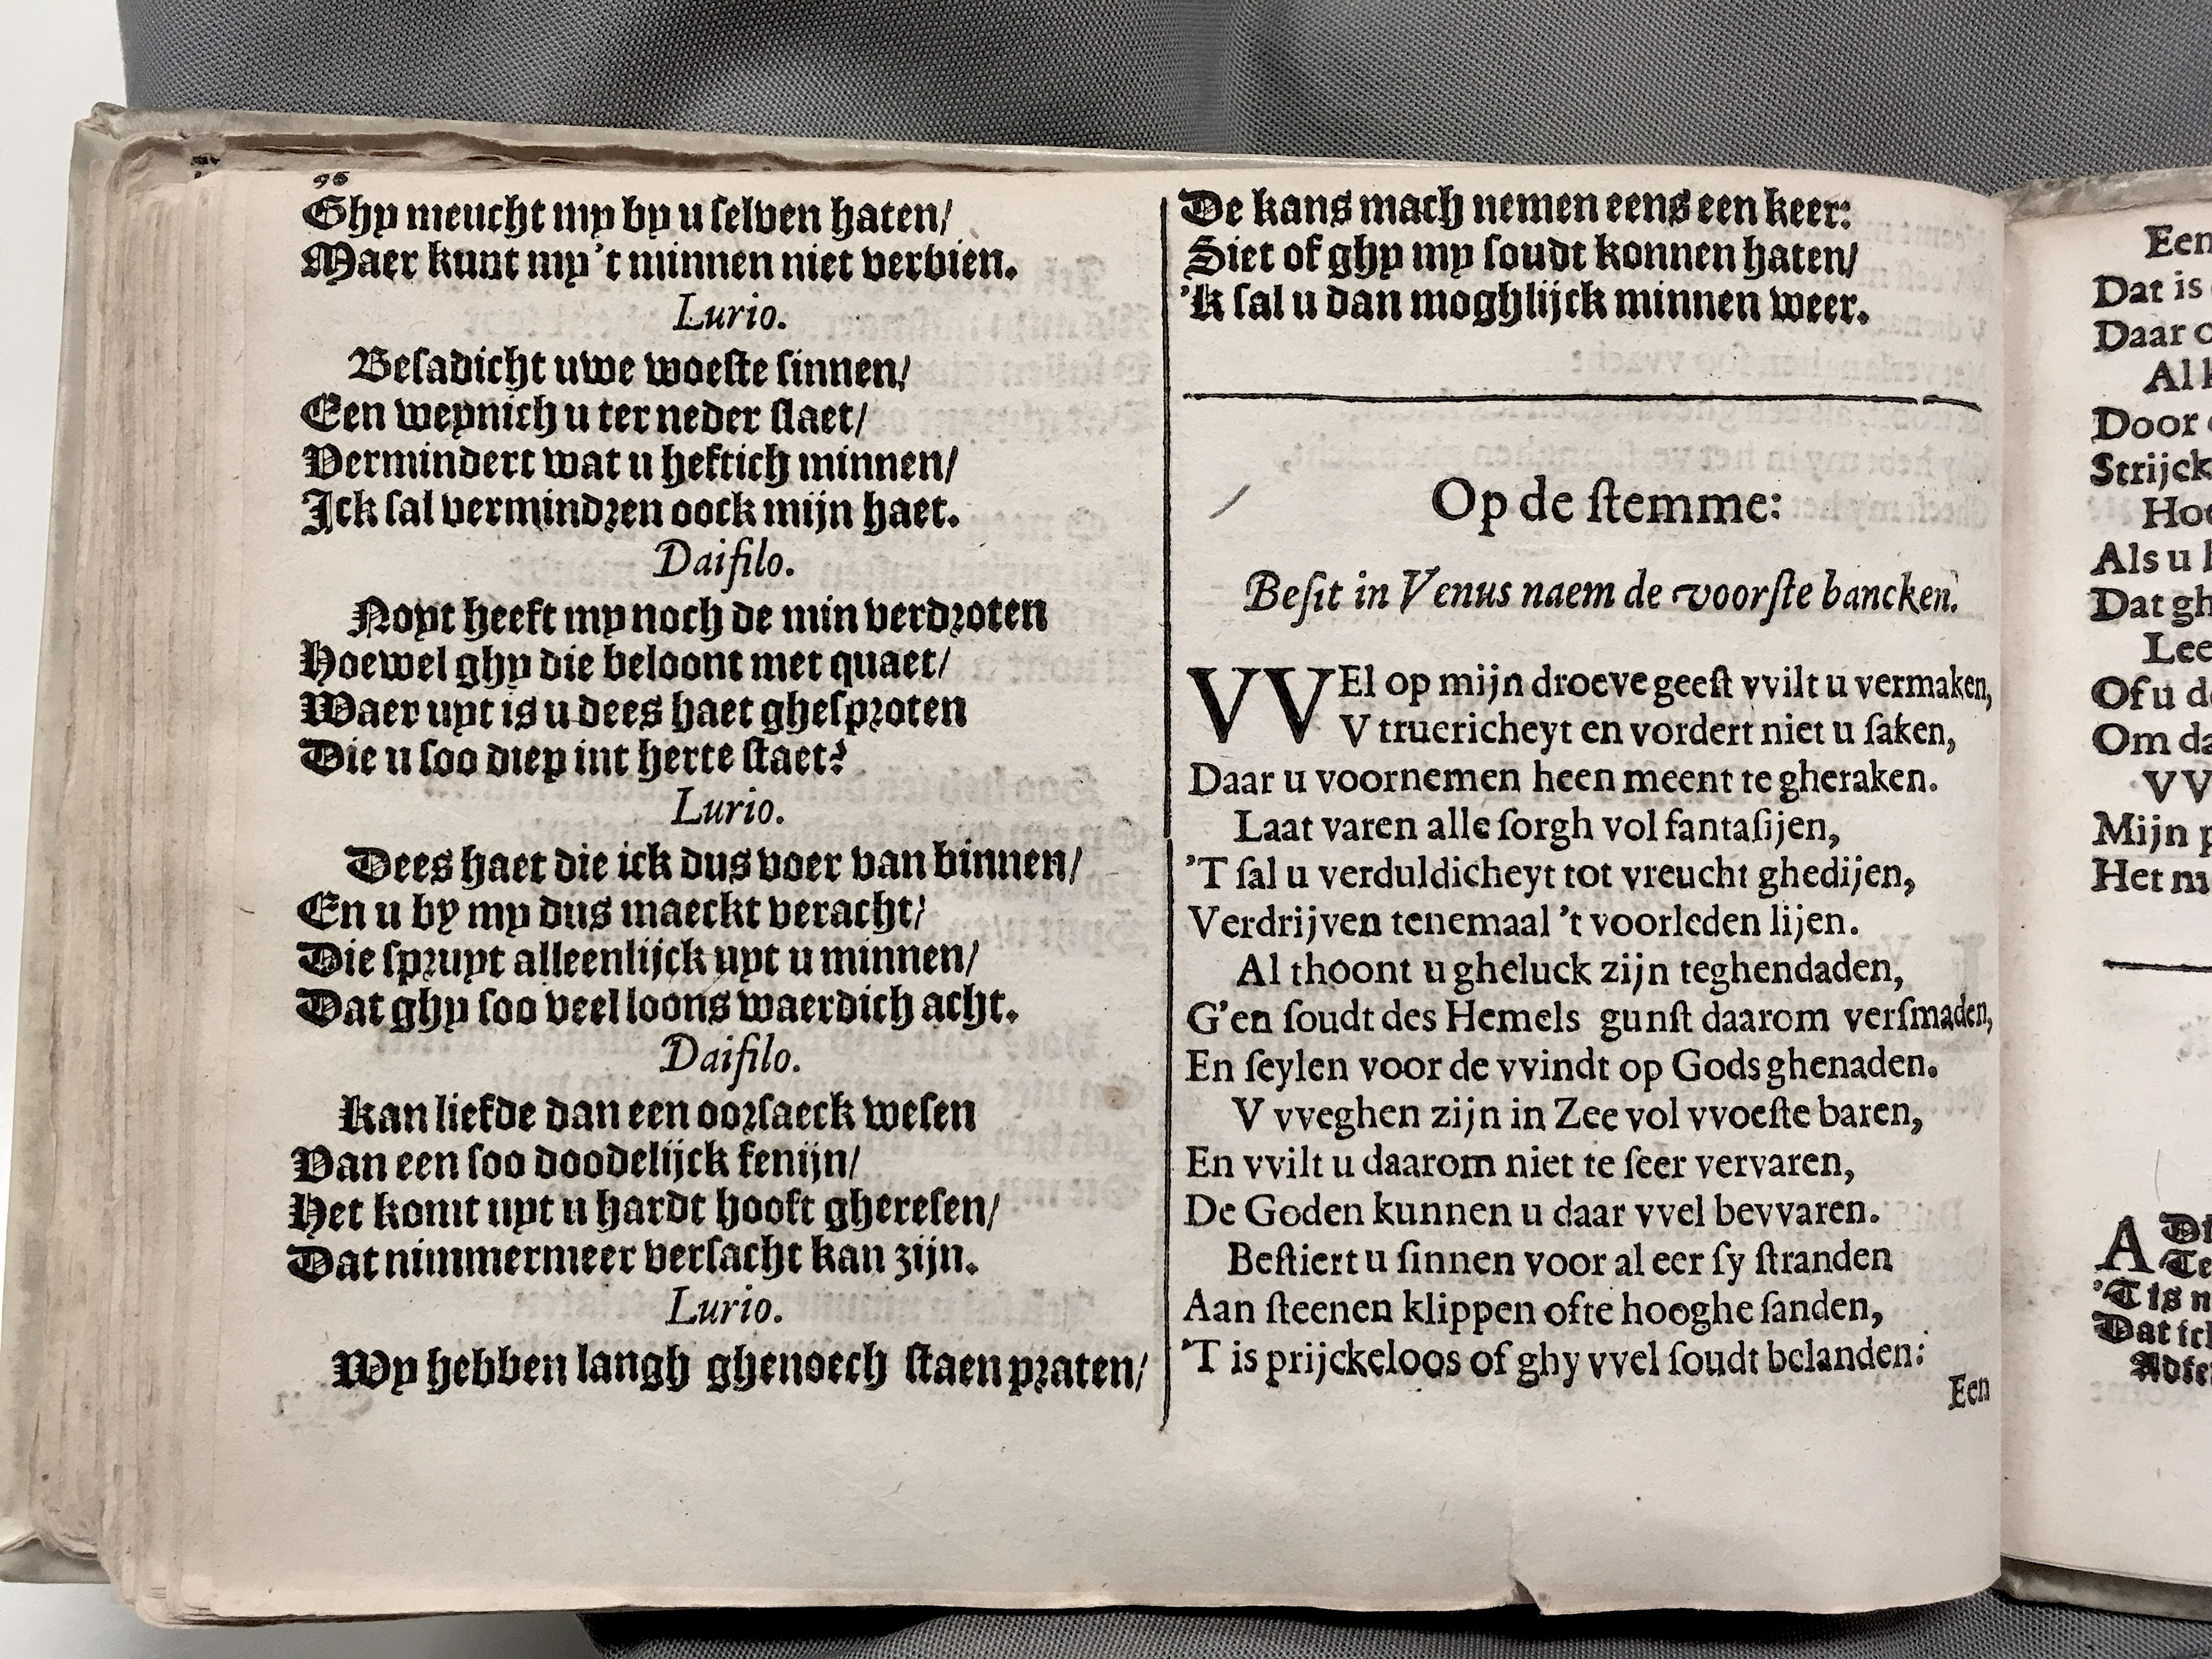 96
Ghy meucht my by u selven haten/
Maer kunt my 't minnen niet verbien.
Lurio.
Besadicht uwe woeste sinnen/
Een weynich u ter neder slaet/
Vermindert wat u heftich minnen/
Ick sal vermindren oock mijn haet.
Daifilo.
Noyt heeft my noch de min verdroten
Hoewel ghy die beloont met quaet/
Waer uyt is u dees haet ghesproten
Die u soo diep int herte staet?
Lurio.
Dees haet die ick dus voer van binnen/
En u by my dus maeckt veracht/
Die spruyt alleenlijck uyt u minnen/
Dat ghy soo veel loons waerdich acht.
Daifilo.
Kan liefde dan een oorsaeck wesen
Van een soo doodelijck fenijn/
Het komt uyt u hardt hooft gheresen/
Dat nimmermeer versacht kan zijn.
Lurio.
Wy hebben langh ghenoech staen praten/
De kans mach nemen eens een keer:
Siet of ghy my soudt konnen haten/
'K sal u dan moghlijck minnen weer.
Op de stemme:
Besit in Venus naem de voorste bancken.
VVEl op mijn droeve geest vvilt u vermaken,
V truericheyt en vordert niet u saken,
Daar u voornemen heen meent te gheraken.
Laat varen alle sorgh vol fantasijen,
'T sal u verduldicheyt tot vreucht ghedijen,
Verdrijven tenemaal 't voorleden lijen.
Al thoont u gheluck zijn teghendaden,
G'en soudt des Hemels gunst daarom versmaden,
En seylen voor de vvindt op Gods ghenaden.
V vveghen zijn in Zee vol vvoeste baren,
En vvilt u daarom niet te seer vervaren,
De Goden kunnen u daar vvel bevvaren.
Bestiert u sinnen voor al eer sy stranden
Aan steenen klippen ofte hooghe sanden,
'T is prijckeloos of ghy vvel soudt belanden:
Een
Een
Dat is
Daar
Al
Door
Strijck
Als u
Dat gh
Lee
Of u d
Om da
VV
Mijn p
Het
A Di
Te
'T is n
Dat ick